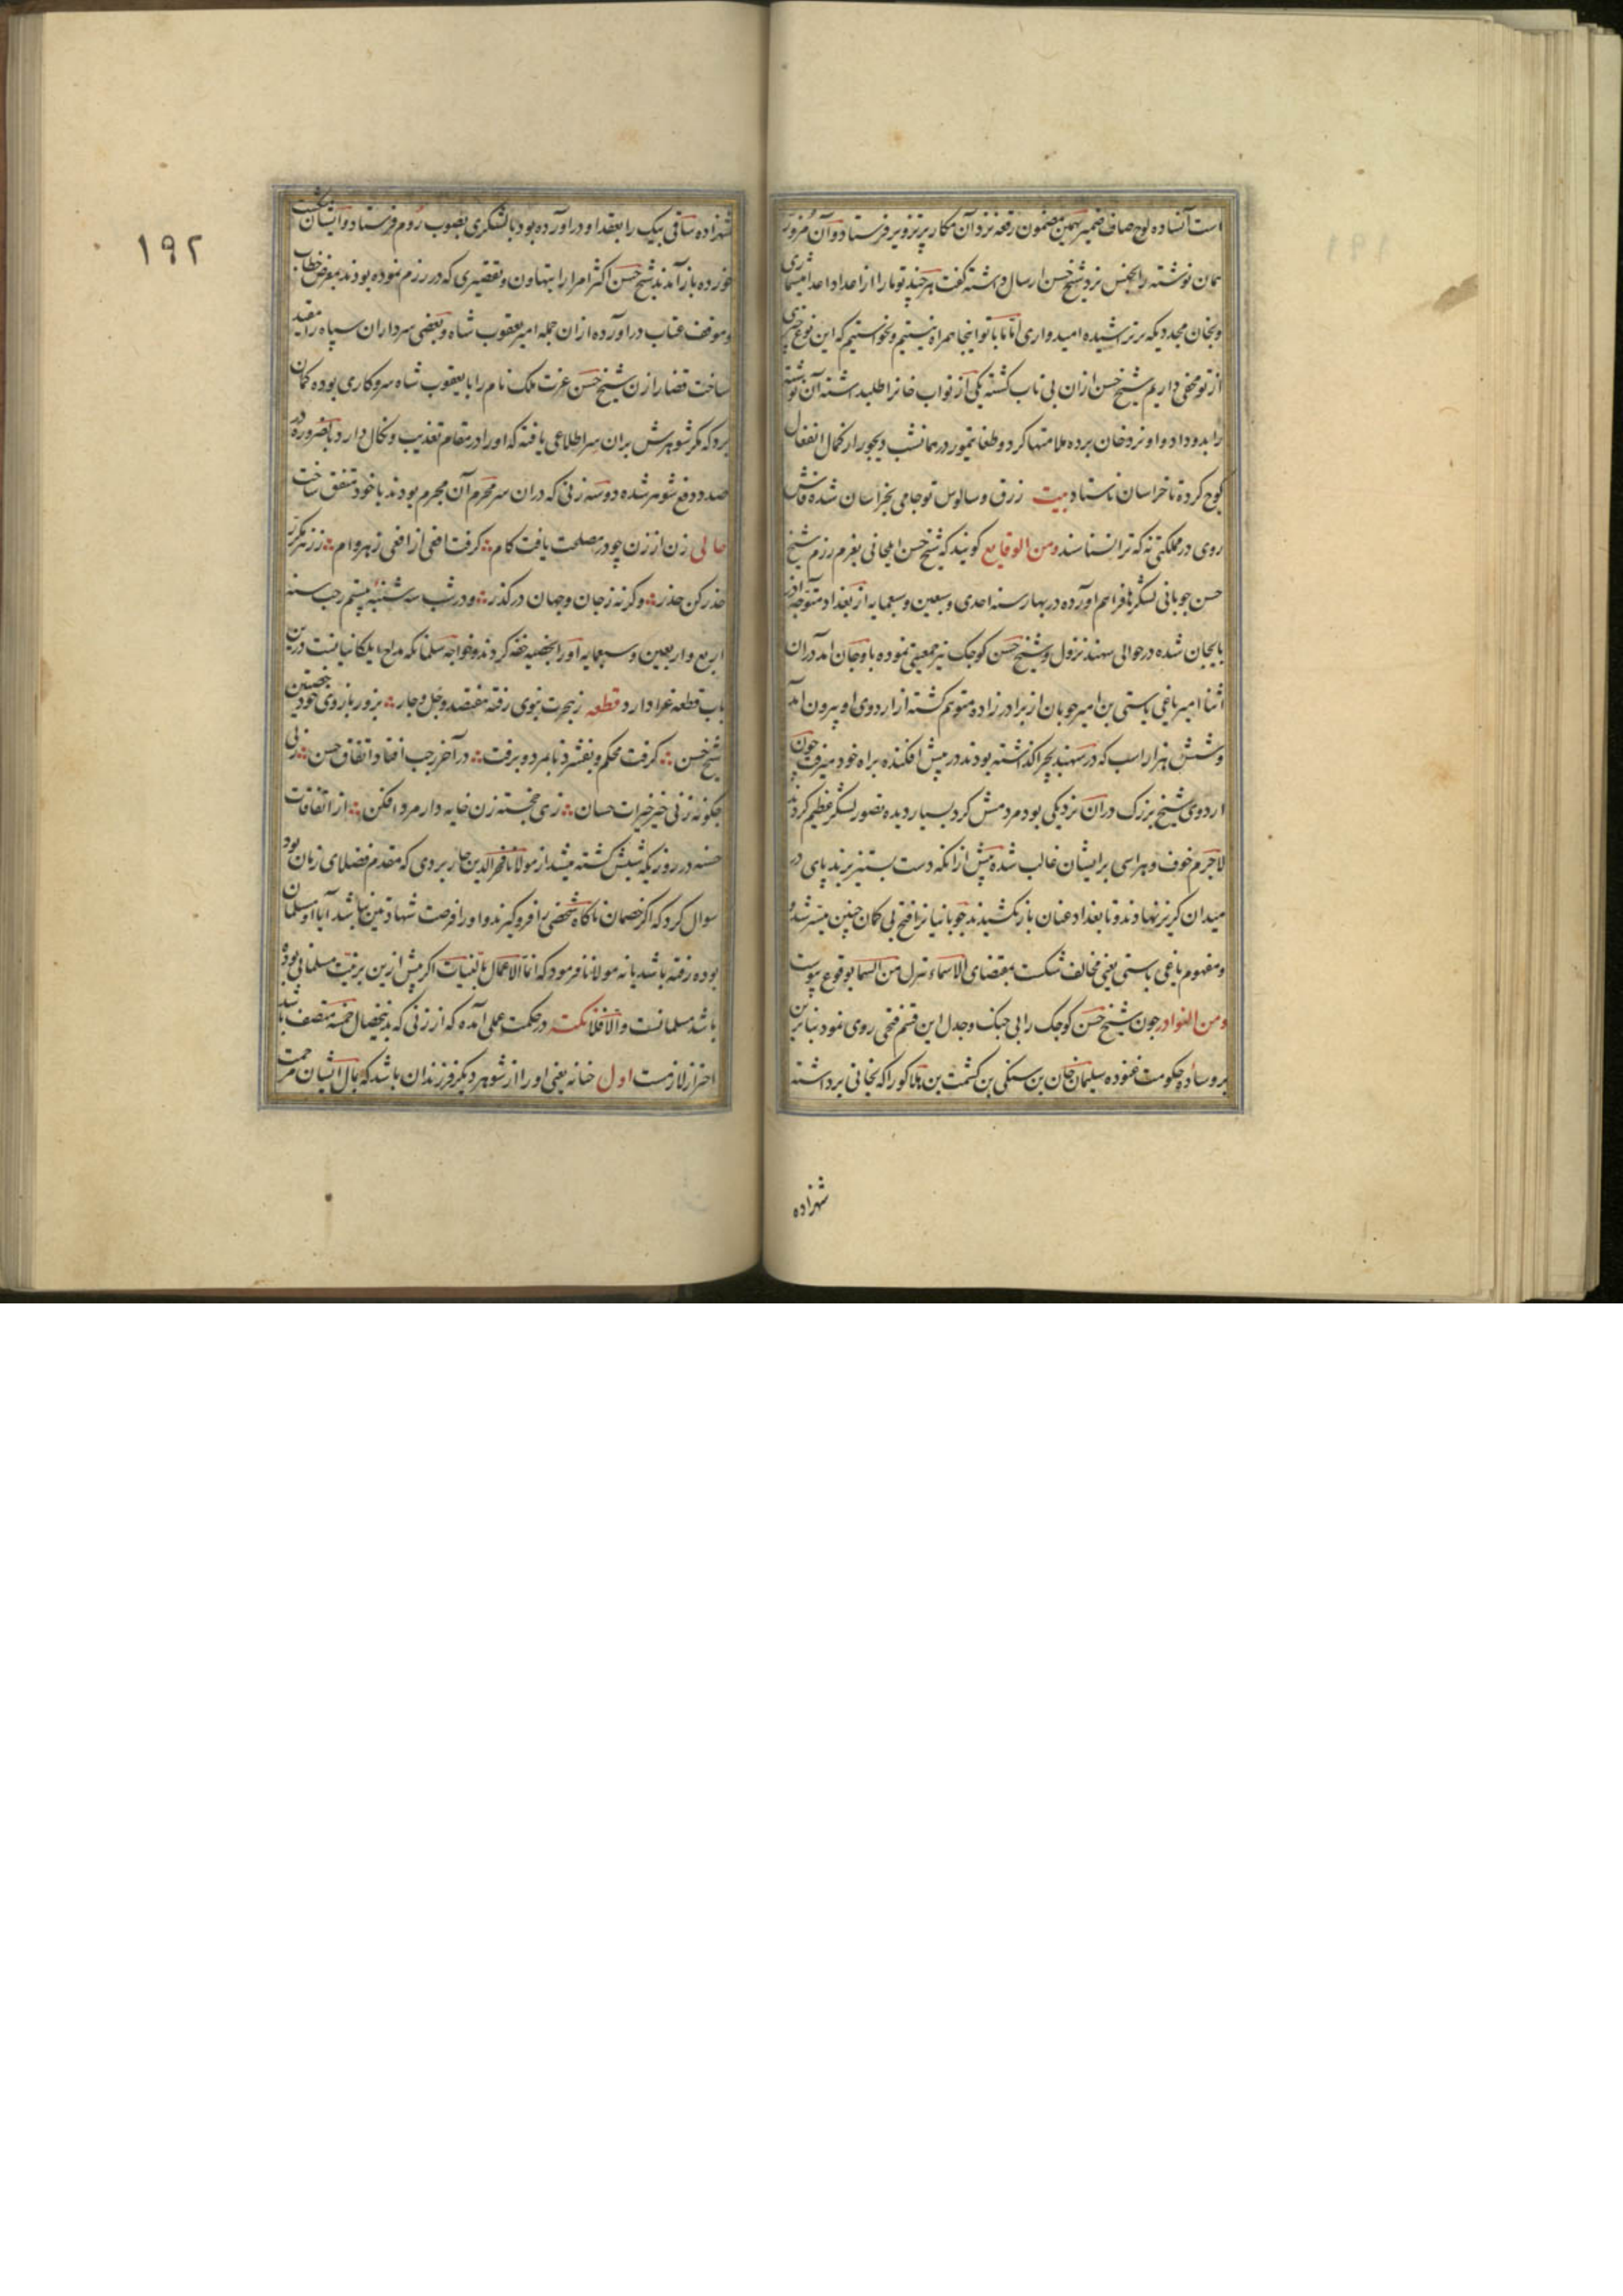 است آن ساده لوح صاف ضمیر بهمین مضمون رقعه نزد آن مکار پر تزویر فرستاد و آن مزور
همان نوشته را بجنس نزد شیخ حسن ارسال داشته گفت هر چند تو ما را از اعداد اعدا میشماری
و بخان مجدد یکه بر تراشیده امیدواری اما ما با تو اینجا همراه نیستیم و نخواستیم که این نوع چیزی
از تو مخفی داریم شیخ حسن ازان بی تاب کشته یکی از نواب خانرا طلبداشته آن نوشته
را بدو داد و او نزد خان برده ملامتها کرد و طغاتیمور در همانشب دیجور از کمال انفعال
کوچ کرده تا خراسان نایستاد بیت زرق و سالوس تو جامی بخراسان شده فاش
روی در مملکتی نه که ترا نشناسند ومن الوقایع کویند که شیخ حسن ایلخانی بعزم رزم شیخ
حسن چوپانی لشکرها فراهم اورده در بهار سنه احدی و سبعین و سبعمایه از بغداد متوجه اذر
بایجان شده در حوالی سهند نزول و شیخ حسن کوچک نیز جمعیتی نموده باوجان امد دران
اثنا امیر یاغی باستی بن امیر چوپان از برادر زاده متوهم کشته از اردوی او بیرون آمد
و شش هزار اسب که در سهند بچرا کذاشته بودند در پیش افکنده براه خود میرفت چون
اردوی شیخ بزرک دران نزدیکی بود مردمش کرد بسیار دیده تصور لشکر عظیم کردند
لاجرم خوف و هراسی بر ایشان غالب شده پیش ازانکه دست بستیز برند پای در
میدان کریز نهادند و تا بغداد عنان باز نکشیدند چوپانیانرا فتح بی کمان چنین میسر شد و
و مفهوم یاغی باستی یعنی مخالف شکست بمقتضای الاسماء تنزل من السما بوقوع پیوست
ومن النوادر چون شیخ حسن کوچک را بی جنک و جدل این قسم فتحی روی نمود بنابرین
بر وساده حکومت غنوده سلیمان خان بن سنکی بن کشمت بن هلاکو را که بخانی برداشته
شهزاده
۱۹۲
شهزاده ساقی بیک را بعقد او در اورده بود با لشکری بصوب روم فرستاد و ایشان شکست
خورده باز آمدند شیخ حسن اکثر امرا را بتهاون و تقصیری که در رزم نموده بودند بمعرض خطاب
و موقف عتاب در اورده ازان جمله امیر یعقوب شاه و بعضی سرداران سپاه را مقید
ساخت قضا را زن شیخ حسن عزت ملک نام را با یعقوب شاه سر و کاری بوده کمان
برد که مکر شوهرش بران سر اطلاعی یافته که او را در مقام تعذیب و نکال دارد بالضروره در
صدد دفع شوهر شده دو سه زنی که دران سر محرم آن مجرم بودند با خود متفق ساخت
حالی زن از زن چو در مصلحت یافت کام ؞ کرفت افعی از افعی زهر وام ؞ ز زن مکرر
حذر کن حذر ؞ و کرنه ز جان و جهان در کذر ؞ و در شب سه شنبه بیستم رجب سنه
اربع و اربعین و سبعمایه او را بخصیه خفه کردند و خواجه سلمان که مداح ایلکانیانست درین
باب قطعه غرا دارد قطعه ز هجرت نبوی رفته هفتصد و چل و چار ؞ بزور بازوی خود خصیتین
شیخ حسن ؞ کرفت محکم و بفشرد تا بمرد و برفت ؞ در آخر رجب افتاد اتفاق حسن ؞ زنی
چکونه زنی خیر خیرات حسان ؞ زهی خجسته زن خایه دار مرد افکن ؞ از اتفاقات
حسنه در روزی که شبش کشته میشد از مولانا فخرالدین جاربردی که مقدم فضلای زمان بود
سوال کرد که اکر خصمان ناکاه شخصی را فرو کیرند و او را فرصت شهادتین نباشد آیا او مسلمان
بوده رفته باشد یا نه مولانا فرمود که انما الاعمال بالنیات اکر پیش ازین بر نیت مسلمانی بوده
باشد مسلمانست والا فلا نکته در حکمت علی آمده که از زنی که بدینخصال خمسه متصف باشد
احتراز لازمست اول حنانه یعنی او را از شوهر دیکر فرزندان باشد که بمال ایشان مرحمت